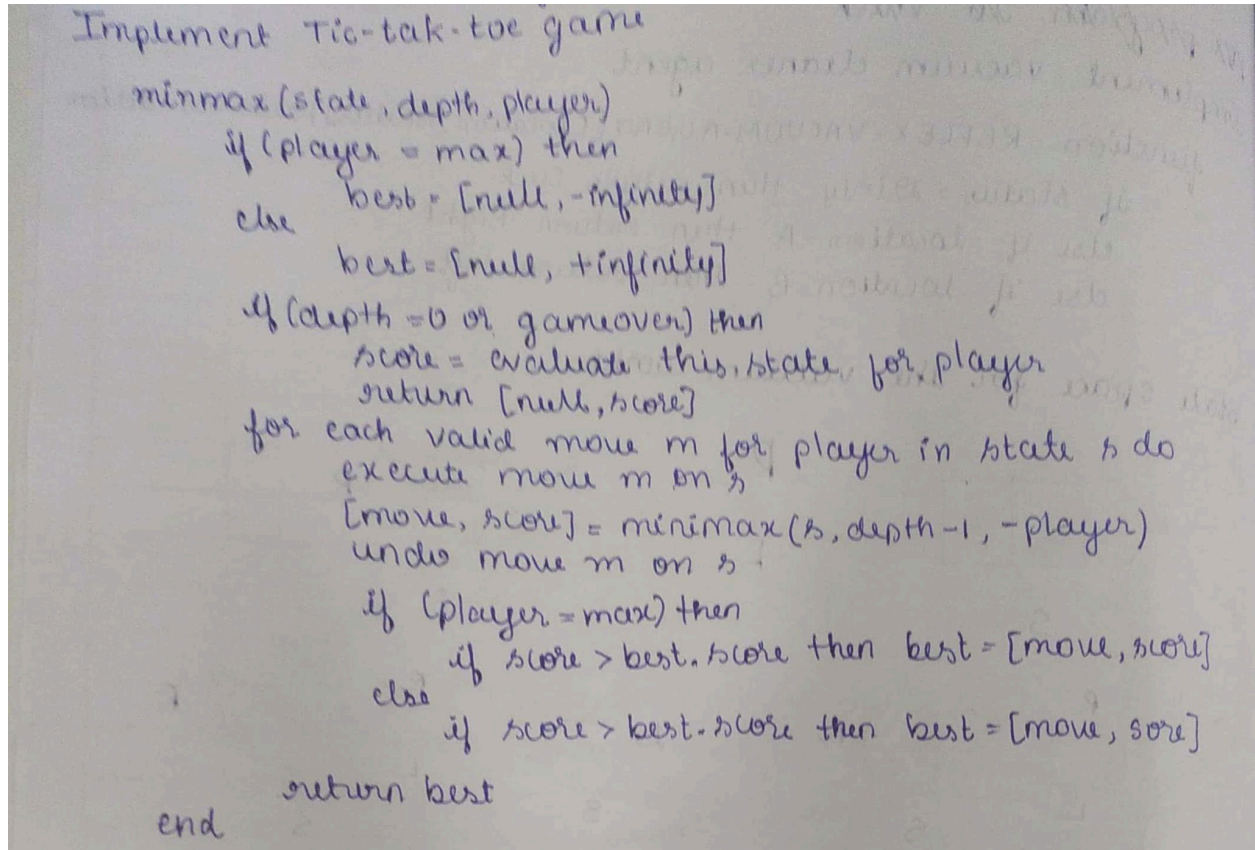 Implement Tic-tak-toe game
minmax (state, depth, player)
if (player = max) then
best = [null, -infinity]
else
best = [null, +infinity]
if (depth = 0 or gameover) then
score = evaluate this state for player
return [null, score]
for each valid move m for player in state s do
execute move m on s
[move, score] = minimax (s, depth -1, -player)
undo move m on s
if (player = max) then
if score > best. score then best = [move, score]
else
if score > best. score then best = [move, sore]
return best
end